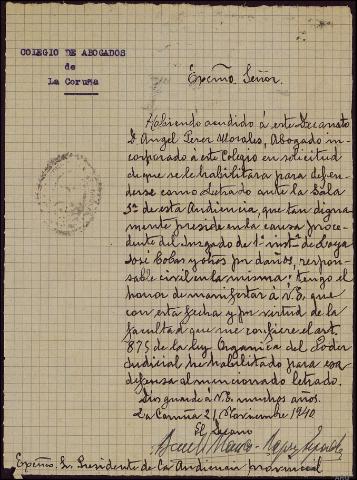 COLEGIO DE ABOGADOS
de
La Coruña
Excmo. Señor.
Habiendo acudido á este Decanato
D. Angel Perez Morales, Abogado in-
corporado á este Colegio en solicitud
de que se le habilitara para defen-
derse como Letrado ante la Sala
de esta Audiencia, que tan digna-
mente preside en la causa proce-
dente del Juzgado de 1ª instª de
José Cobas y otros por daños, respon-
sable civil en la misma; tengo el
honor de manifestar á V.E. que
con esta fecha y por virtud de la
facultad que me confiere el art.
875 de la ley Orgánica del Poder
Judicial he habilitado para esa
defensa al mencionado letrado.
Dios guarde á V.E. muchos años.
La Coruña 21 Noviembre 1940
El Decano
Excmo. Sr. Presidente de la Audiencia provincial